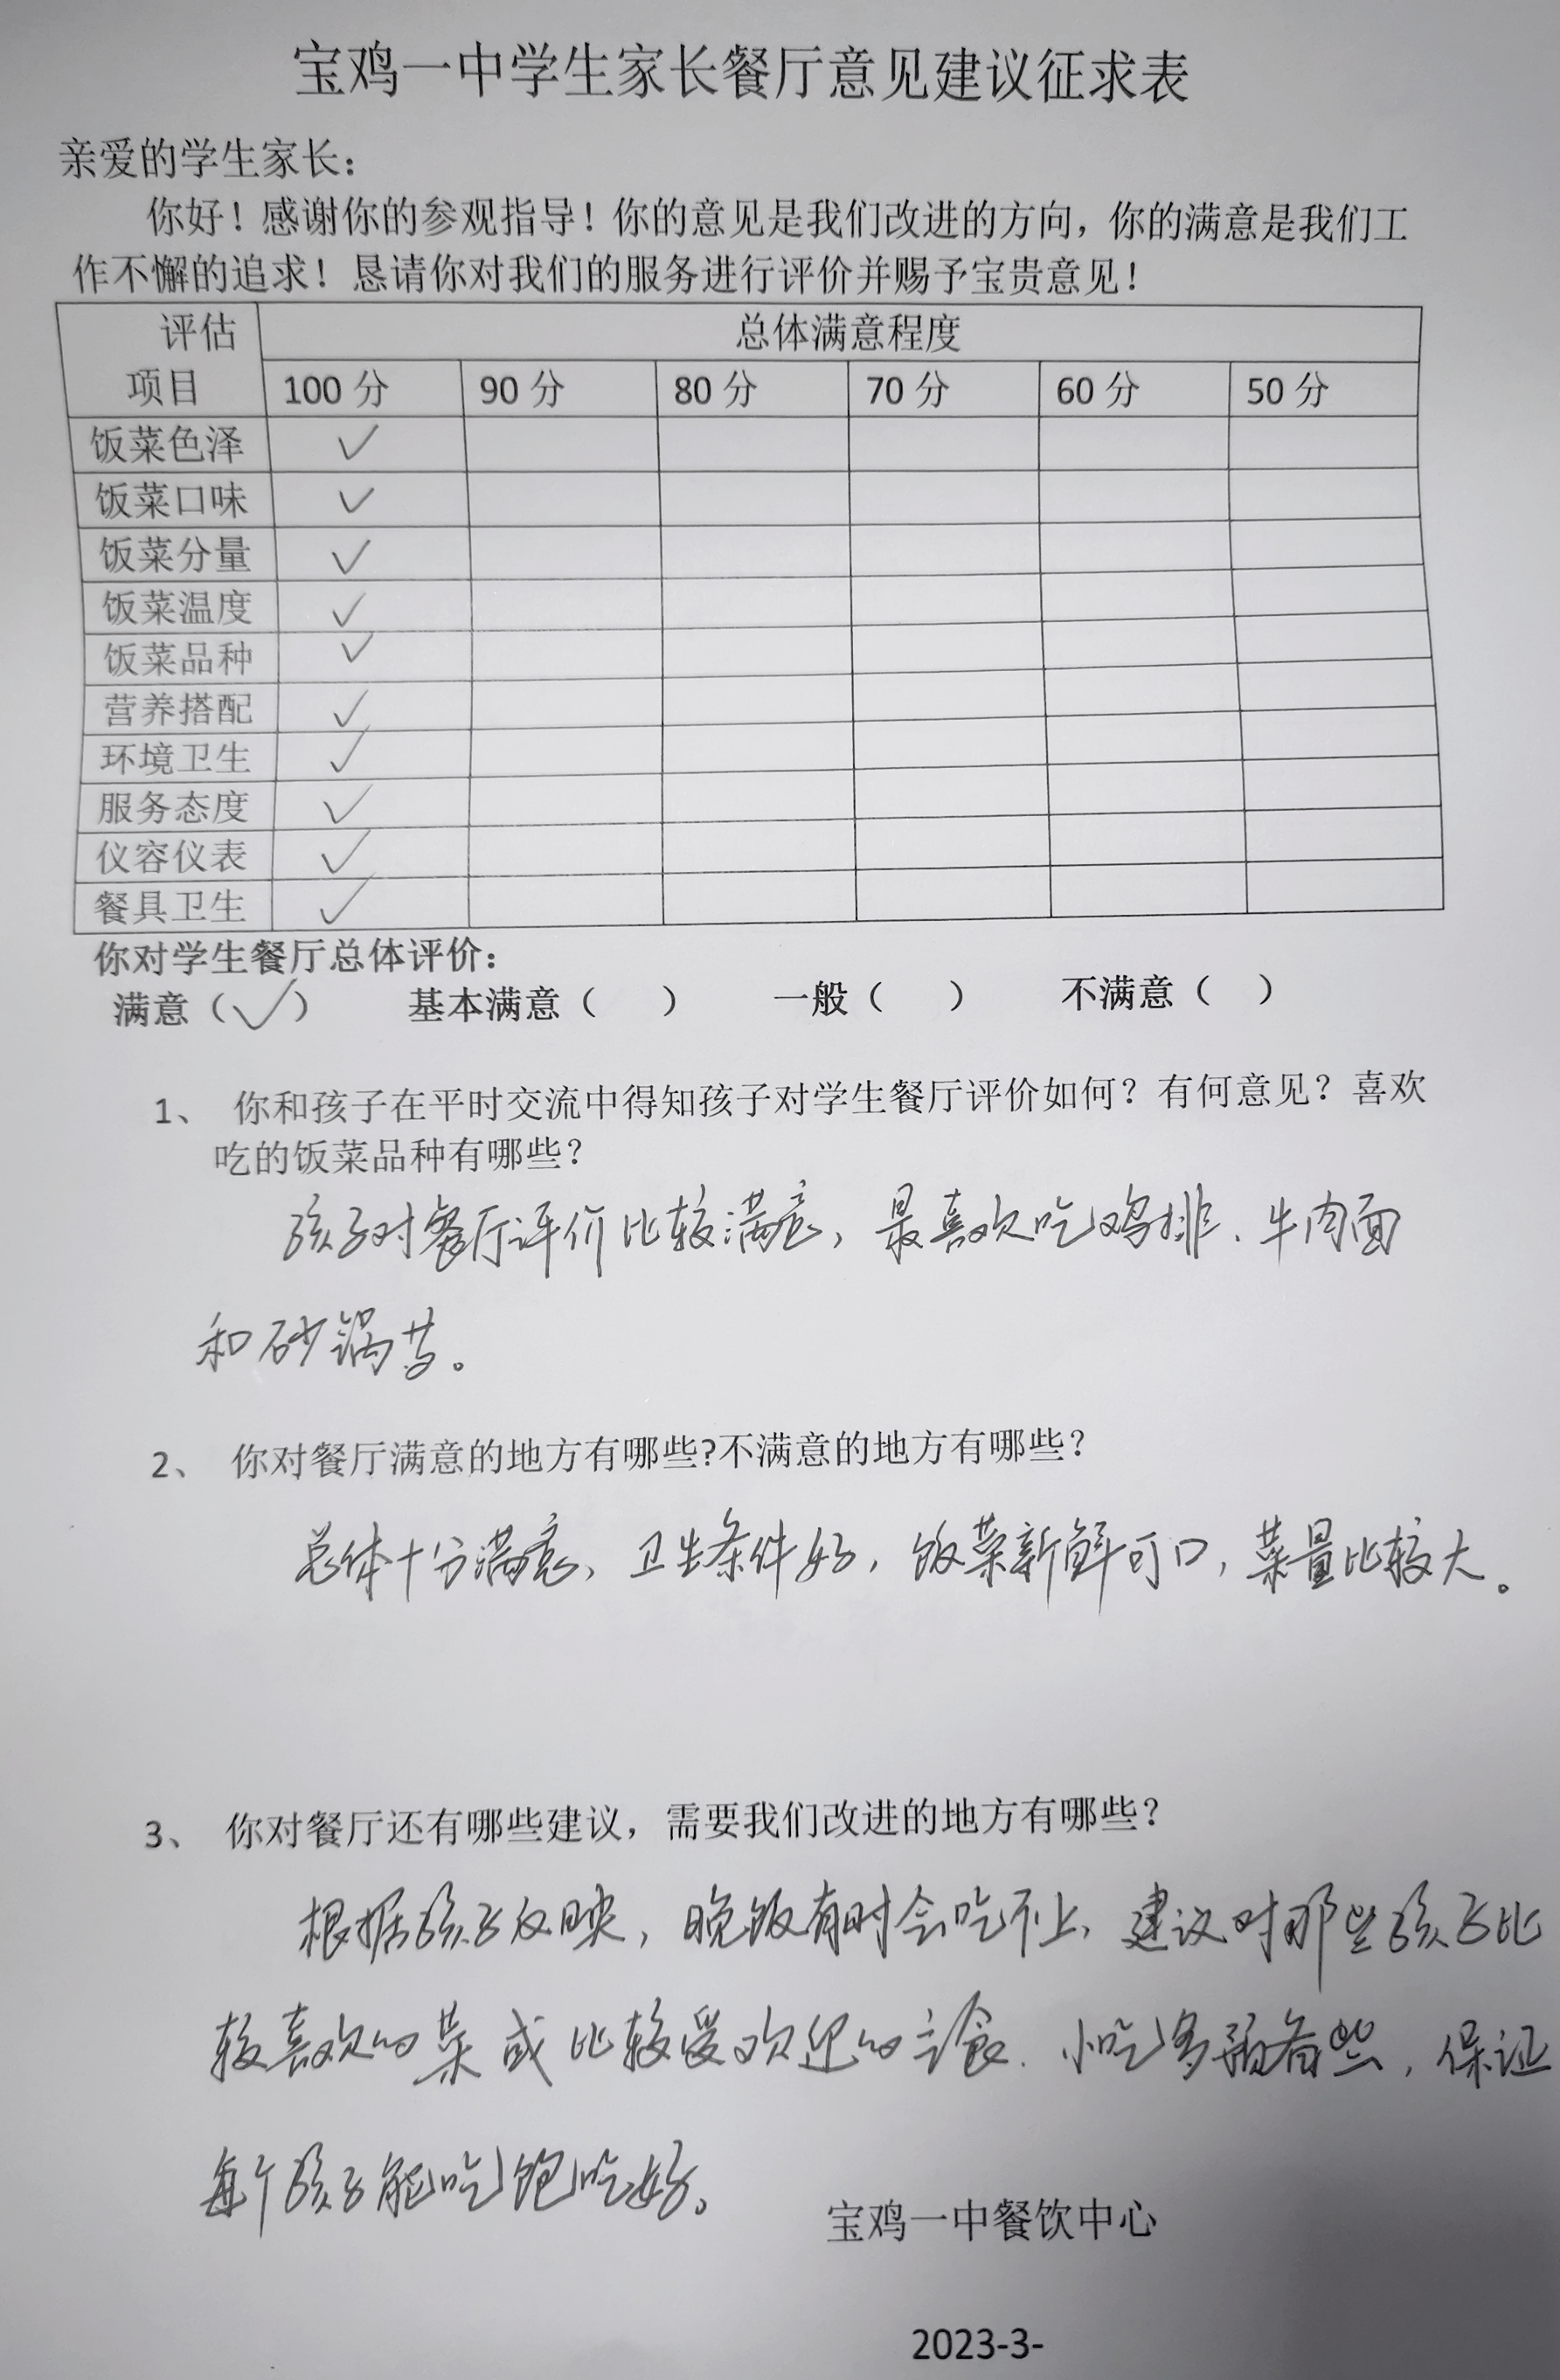 宝鸡一中学生家长餐厅意见建议征求表
亲爱的学生家长：
你好！感谢你的参观指导！你的意见是我们改进的方向，你的满意是我们工
作不懈的追求！恳请你对我们的服务进行评价并赐予宝贵意见！
评估 总体满意程度
项目 100分 90分 80分 70分 60分 50分
饭菜色泽 ✓
饭菜口味 ✓
饭菜分量 ✓
饭菜温度 ✓
饭菜品种 ✓
营养搭配 ✓
环境卫生 ✓
服务态度 ✓
仪容仪表 ✓
餐具卫生 ✓
你对学生餐厅总体评价：
满意（✓） 基本满意（ ） 一般（ ） 不满意（ ）
1、 你和孩子在平时交流中得知孩子对学生餐厅评价如何？有何意见？喜欢
吃的饭菜品种有哪些？
孩子对餐厅评价比较满意，最喜欢吃鸡排、牛肉面
和砂锅等。
2、 你对餐厅满意的地方有哪些?不满意的地方有哪些？
总体十分满意、卫生条件好，饭菜新鲜可口，菜量比较大。
3、 你对餐厅还有哪些建议，需要我们改进的地方有哪些？
根据孩子反映，晚饭有时会吃不上、建议对那些孩子比
较喜欢的菜或比较受欢迎的主食、小吃多预备些，保证
每个孩子能吃饱吃好。
宝鸡一中餐饮中心
2023-3-